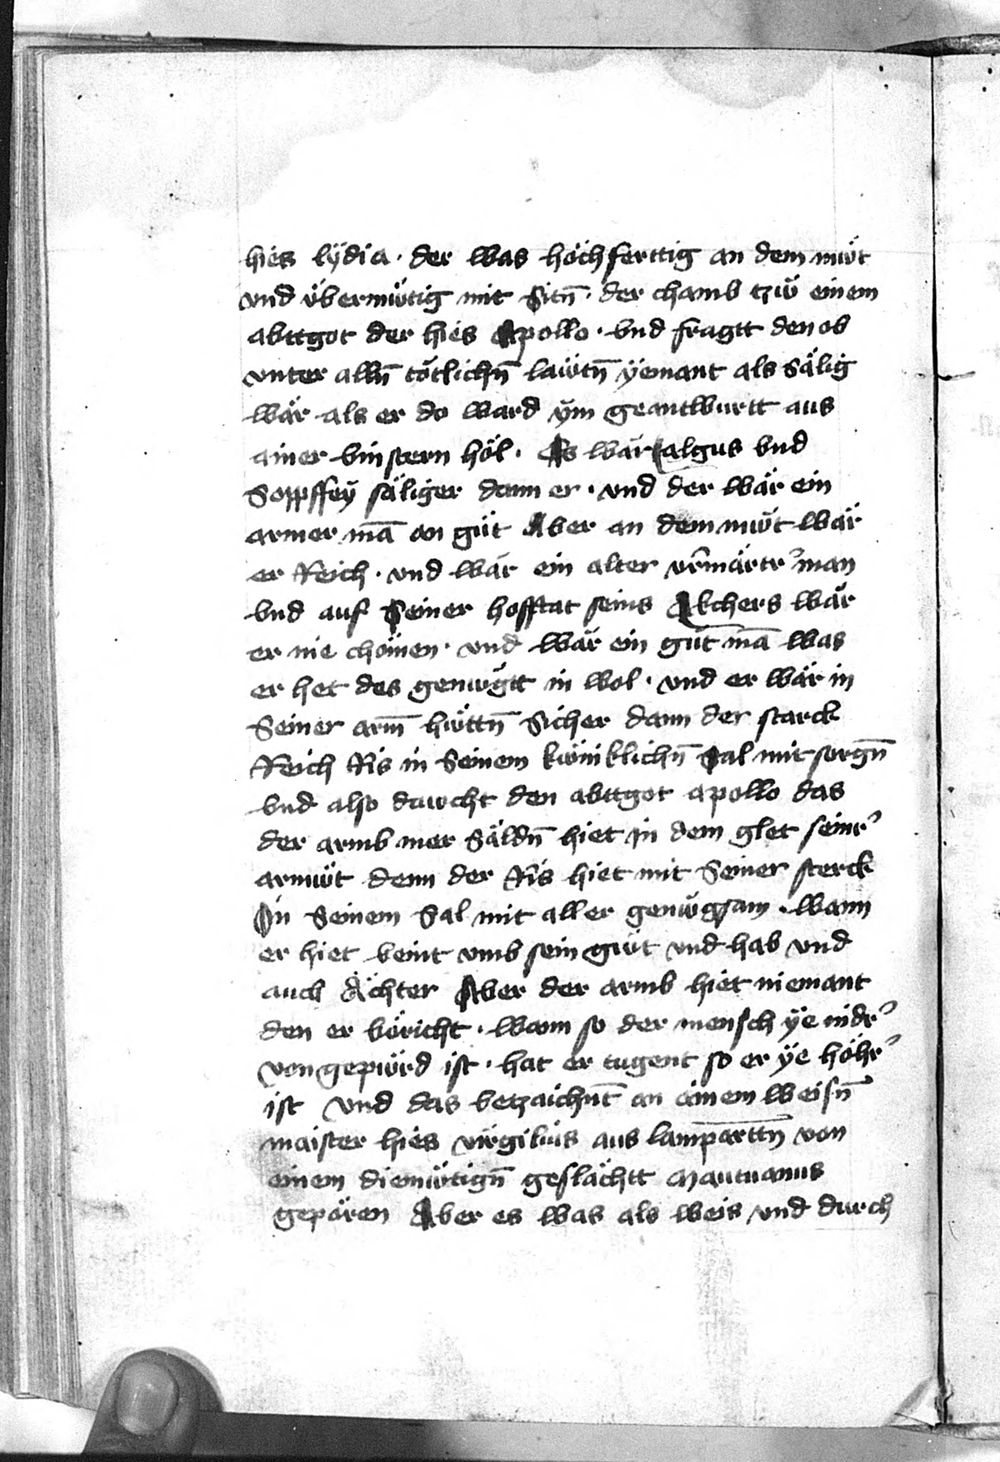 hies lÿdia · der was höchferttig an dem mŵt
vnd v̈bermŵtig mit Sitn̄ · der chamb tzŵ einem
abttgot der hies Apollo · vnd fragtt den ob
vnter alln̄ tötlichn̄ lawtn̄ ÿemant als sälig
wär als er do ward ÿm geantwurtt aus
ainer vinstern höl · Es wär Lalgus vnd
Soppffeÿ säliger dann er · vnd der wär ein
armer mā an gūt Aber an dem mŵt wär
er Reich · vnd wär ein alter man
vnd auf Seiner hoffstat seins Akchers wär
er nie chömen · vnd wär ein gūt mā was
er het des genwgtt in wol · vnd er wär in
Seiner arm̄ hŵttn̄ Sicher dann der starck
Reich Ris in Seinem kwniklichn̄ Sal mit sorgn̄
vnd also dawcht den abttgot apollo das
der armb mer Säldn̄ hiet in dem glet seinr
armŵt denn der Ris hiet mit Seiner sterck
In Seinem Sal mit aller genẅgsam · wann
er hiet veint vmb sein gŵt vnd hab vnd
auch Ächter Aber der armb hiet niemant
den er vöricht · wann so der mensch ÿe nidr
von gepŵrd ist · hat er tugent so er ÿe höhr
ist vnd das betzaichnt̄ an ainem weisn̄
maister hies virgilius aus lamparttn̄ von
einem diemŵtign̄ geslächtt Mantuanus
gepören Aber es was als weis vnd durch